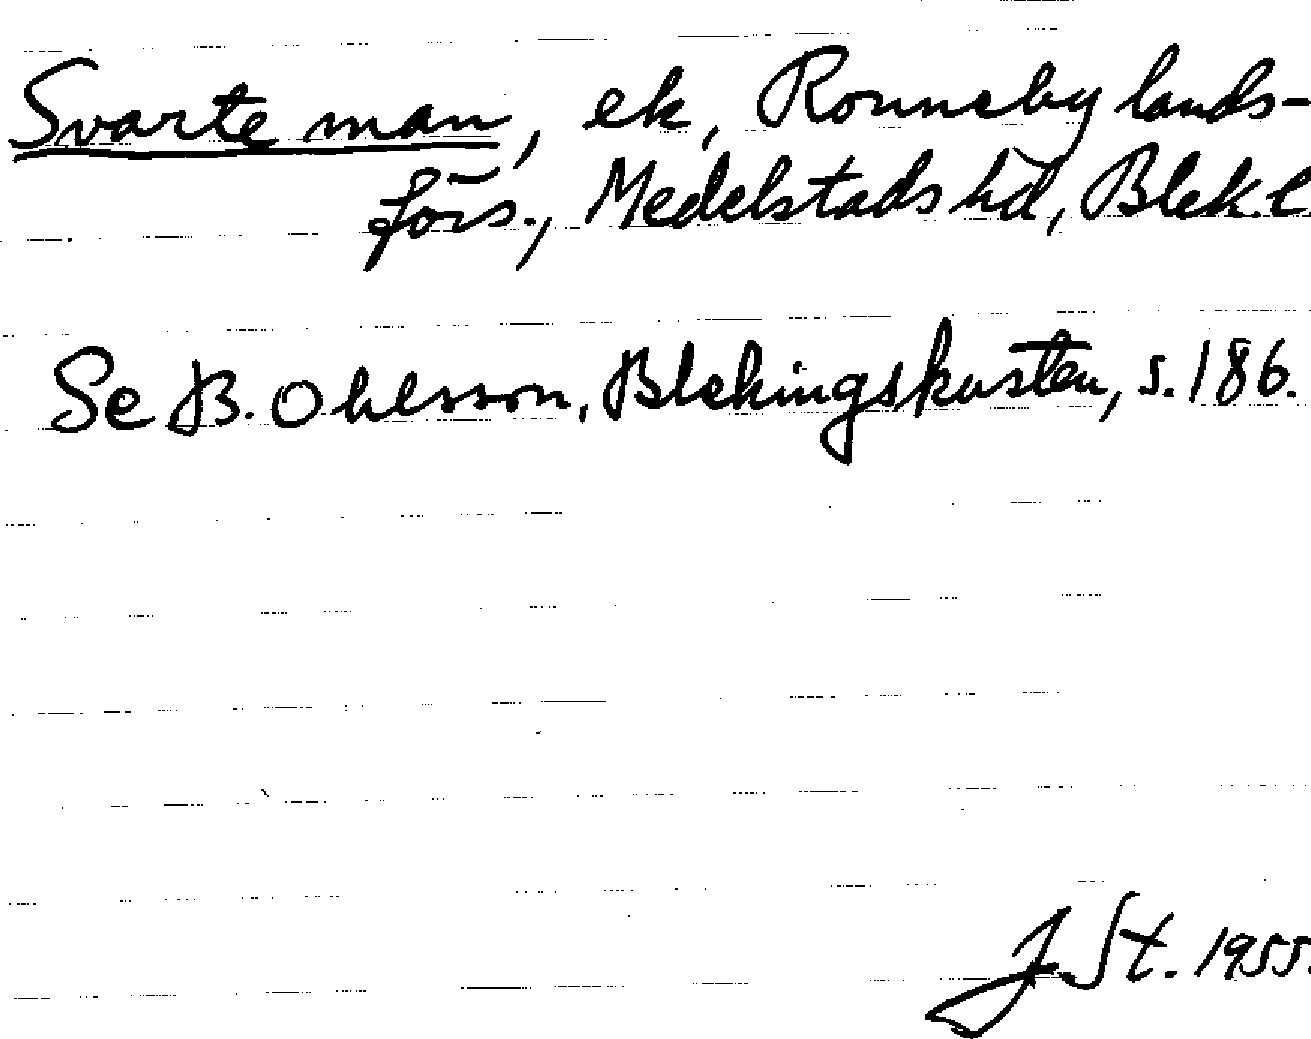 Svarte man, ek, Ronneby lands-
förs., Medelstads hd, Blek. l
Se B. Ohlsson, Blekingskusten, s. 186.
J. St. 1955.